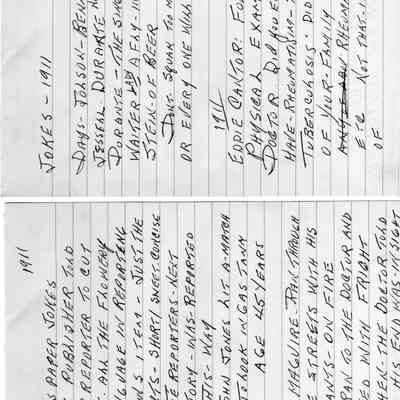 JOKES - 1911
DAYS - JOLSON - BEN
JESSELL DURANTE
DURANTE - THE SING
WAITER HAD A FLY - IN
STEIN - OF BEER
DON'T SQUAWK TO M
OR EVERY ONE WILL
1911
EDDIE CANTOR. FO
PHYSICAL EXAM
DOCTOR DID YOU E
HAVE - RHEUMATISM -
TUBERCULOSIS. DID
OF YOUR FAMILY
RHEUM
ETC NOT THAT - I
OF
1911
PAPER JOKES
PUBLISHER TOLD
REPORTER TO CUT
ALL THE FLOWERY
GUAGE IN REPORTING
ITEM - JUST THE
SHORT, SWEET - CONCISE
REPORTERS - NEXT
WAS - REPORTED
THIS - WAY
JONES LIT A - MATCH
TO LOOK IN GAS TANK
AGE 45 YEARS
MAGUIRE - RAN THROUGH
STREETS WITH HIS
ANTS - ON FIRE
RAN TO THE DOCTOR AND
ED WITH FRIGHT
HEN - THE DOCTOR TOLD
HIS END WAS - IN SIGHT